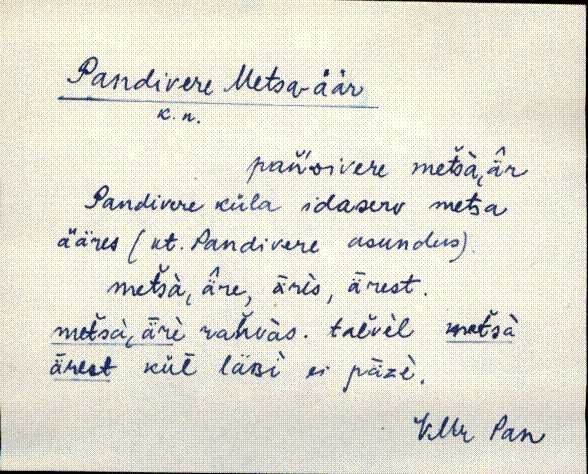 Pandivere Metsa-äär
k. n.
pańdivere metsà, är̂
Pandivere küla idaserv metsa
ääres (vt. Pandivere asundus).
metsà, är̂e, ār̀is, ārest.
metsà, ārè rahvàs. taevèl metsà
ārest kül läbì ei pāzè.
V.Mr Pan